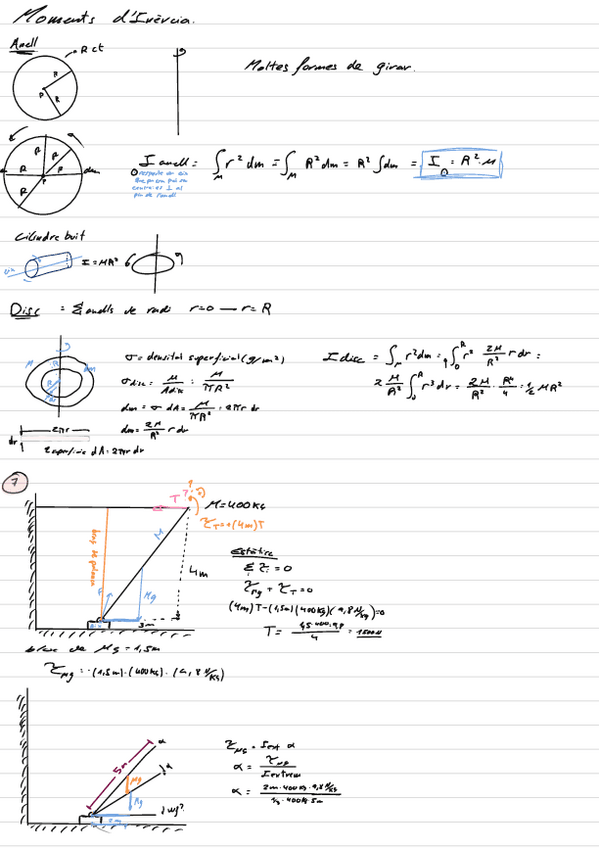 Moments d'Inèrcia.
Anell
R ct
Moltes formes de girar.
R
R
P
R
R
R
R
P
dm
I anell = ∫_M r² dm = ∫_M R² dm = R² ∫dm = I = R²·M
respecte un eix
que passa pel seu
centre és ⊥ al
pla de l'anell
Cilindre buit
I = MR²
Disc = Σ anells de radi r=0 — r=R
M
dm
R
σ = densitat superficial (g/m²)
σ disc = M / A disc = M / πR²
dm = σ dA = M / πR² · 2πr dr
dm = 2M / R² r dr
I disc = ∫_M r² dm = ∫_0^R r² 2M/R² r dr =
2 M/R² ∫_0^R r³ dr = 2M/R² · R⁴/4 = 1/2 MR²
2πr
dr
superfície dA = 2πr dr
7
T
M = 400 Kg
τ_T = +(4m)T
braç de palanca
M
Mg
4m
3m
Estàtica
Σ τ = 0
τ_Mg + τ_T = 0
(4m)T - (1,5m)(400Kg)(9,8 N/Kg) = 0
T = 1,5·400·9,8 / 4 = 1500N
braç de Mg = 1,5m
τ_Mg = -(1,5m)·(400Kg)·(9,8 N/Kg)
5m
α
Mg
Mg
2m
α
w?
τ_Mg = I ext α
α = τ_Mg / I extrem
α = 2m·400Kg·9,8 N/Kg / 1/3·400Kg 5m